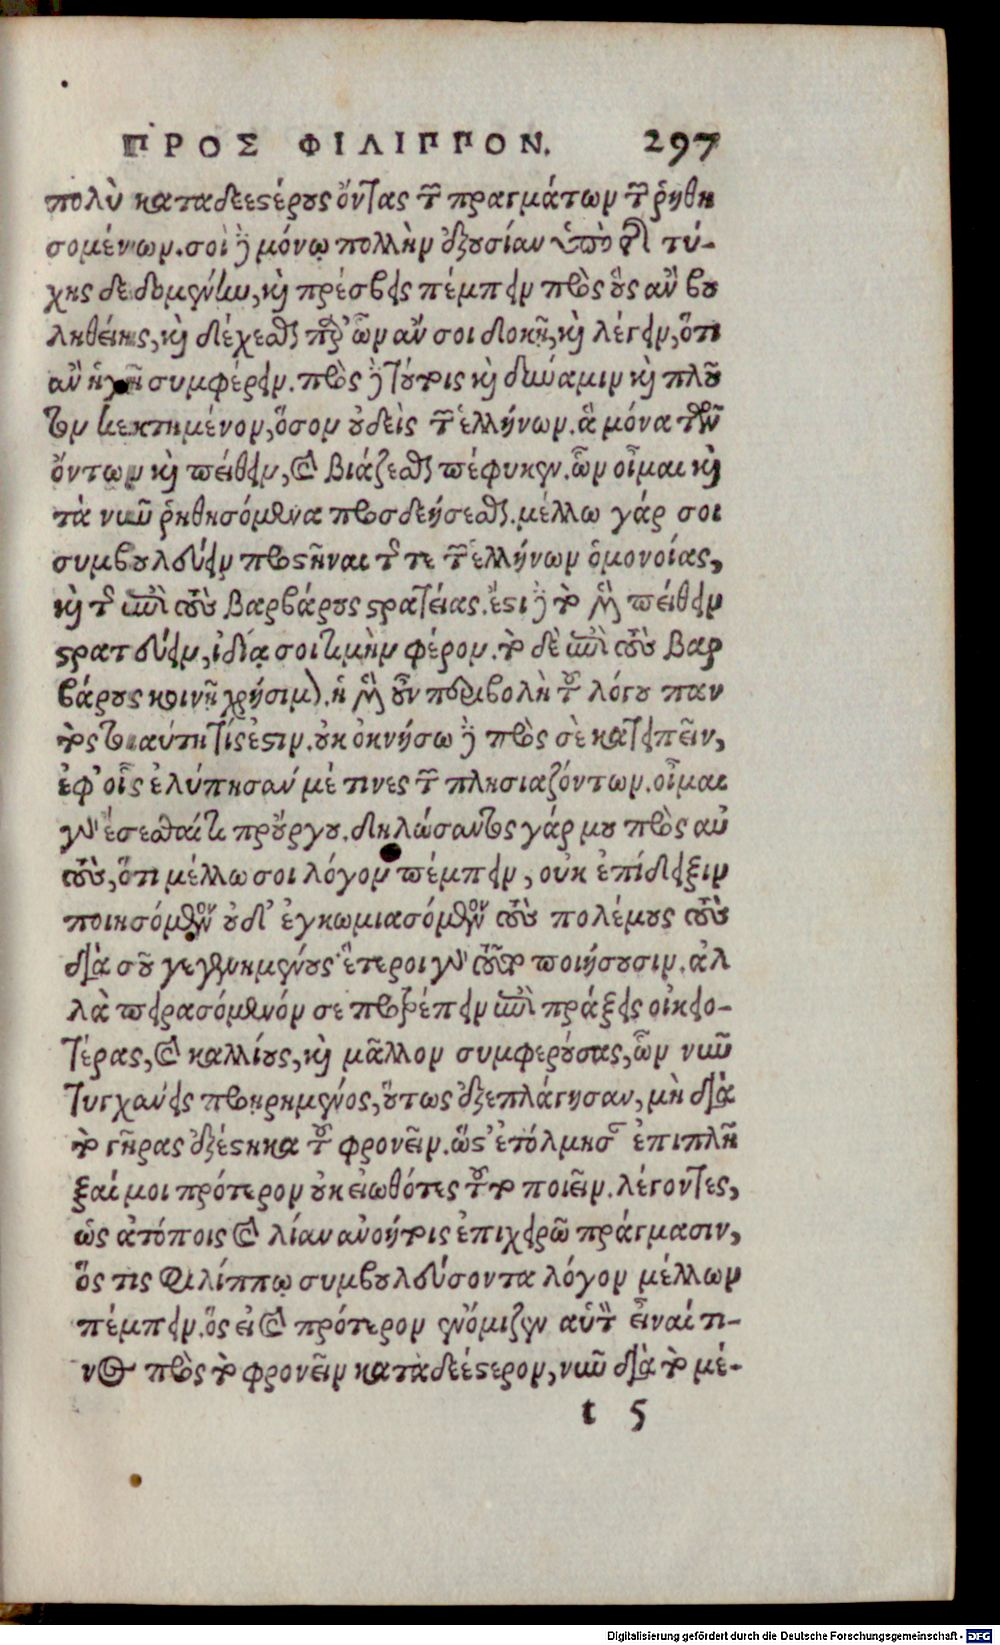 ΠΡΟΣ ΦΙΛΙΠΠΟΝ. 297
πολὺ καταδεεστέρους ὄντας τῶν πραγμάτων τῶν ῥηθη
σομένων. σοὶ δὲ μόνῳ πολλὴν ἐξουσίαν ὑπὸ τῆς τύ-
χης δεδομένην, καὶ πρέσβεις πέμπειν πρὸς οὓς ἂν βου
ληθείης, καὶ δέχεσθαι παρ' ὧν ἄν σοι δοκῇ, καὶ λέγειν, ὅτι
ἂν ἡγῇ συμφέρειν. πρὸς δὲ τούτοις καὶ δύναμιν καὶ πλοῦ
τον κεκτημένον, ὅσον οὐδεὶς τῶν ἑλλήνων. ἃ μόνα τῶν
ὄντων καὶ πείθειν, καὶ βιάζεσθαι πέφυκεν. ὧν οἶμαι καὶ
τὰ νῦν ῥηθησόμενα προσδεήσεσθαι. μέλλω γάρ σοι
συμβουλεύειν προστῆναι τῆς τε τῶν ἑλλήνων ὁμονοίας,
καὶ τῆς ἐπὶ τοὺς βαρβάρους στρατείας. ἔστι δὲ τὸ μὲν πείθειν
στρατεύειν, ἰδίᾳ σοι τιμὴν φέρον. τὸ δὲ ἐπὶ τοὺς βαρ
βάρους κοινῇ χρήσιμον. ἡ μὲν οὖν περιβολὴ τοῦ λόγου παν
τὸς τοιαύτη τίς ἐστιν. οὐκ ὀκνήσω δὲ πρὸς σὲ κατειπεῖν,
ἐφ' οἷς ἐλύπησάν μέ τινες τῶν πλησιαζόντων. οἶμαι
γὰρ ἔσεσθαί τι προὔργου. δηλώσαντος γάρ μου πρὸς αὐ
τοὺς, ὅτι μέλλω σοι λόγον πέμπειν, οὐκ ἐπίδειξιν
ποιησόμενον οὐδ' ἐγκωμιασόμενον τοὺς πολέμους τοὺς
διὰ σοῦ γεγενημένους ἕτεροι γὰρ τοῦτο ποιήσουσιν. ἀλ
λὰ πειρασόμενόν σε προτρέπειν ἐπὶ πράξεις οἰκειο-
τέρας, καὶ καλλίους, καὶ μᾶλλον συμφερούσας, ὧν νῦν
τυγχάνεις προῃρημένος, οὕτως ἐξεπλάγησαν, μὴ διὰ
τὸ γῆρας ἐξέστηκα τοῦ φρονεῖν. ὥστ' ἐτόλμησαν ἐπιπλῆ
ξαί μοι πρότερον οὐκ εἰωθότες τοῦτο ποιεῖν. λέγοντες,
ὡς ἀτόποις καὶ λίαν ἀνοήτοις ἐπιχειρῶ πράγμασιν,
ὅς τις Φιλίππῳ συμβουλεύσοντα λόγον μέλλων
πέμπειν. ὃς εἰ καὶ πρότερον ἐνόμιζεν αὑτὸν εἶναί τι-
νος πρὸς τὸ φρονεῖν καταδεέστερον, νῦν διὰ τὸ μέ-
t 5
Digitalisierung gefördert durch die Deutsche Forschungsgemeinschaft - DFG